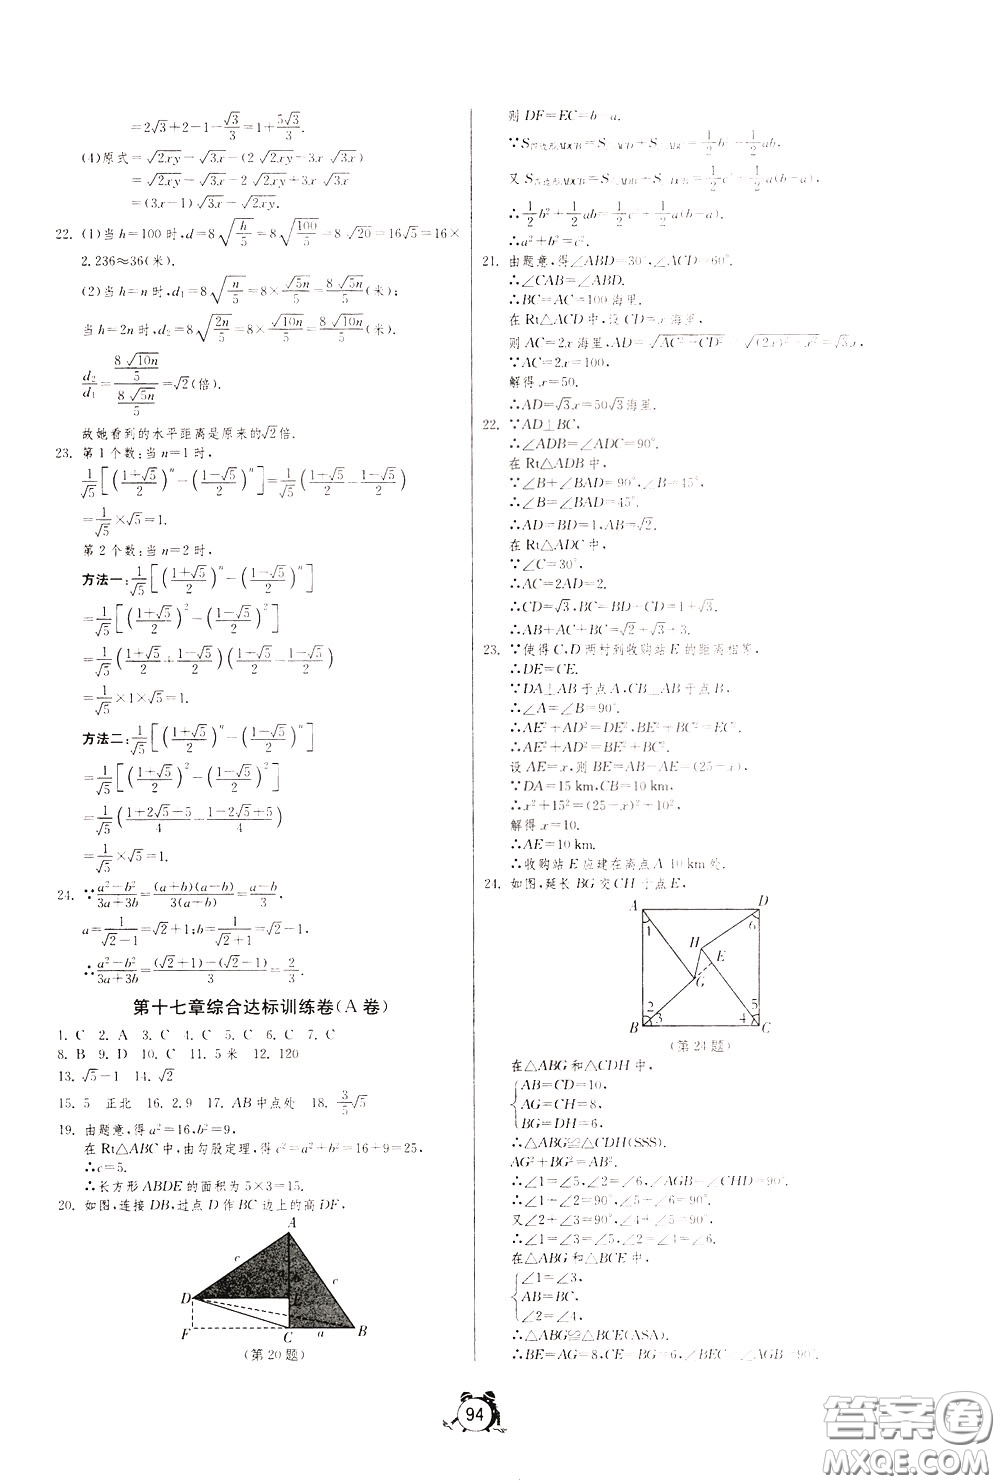 =2√3+2-1-√3/3=1+5√3/3.
(4)原式=√2xy-√3x-(2√2xy-3x√3x)
=√2xy-√3x-2√2xy+3x√3x
=(3x-1)√3x-√2xy.
22. (1)当h=100时,d=8√(h/5)=8√(100/5)=8√20=16√5=16×
2.236≈36(米).
(2)当h=n时,d₁=8√(n/5)=8×√5n/5=8√5n/5(米);
当h=2n时,d₂=8√(2n/5)=8×√10n/5=8√10n/5(米).
d₂/d₁=(8√10n/5)/(8√5n/5)=√2(倍).
故她看到的水平距离是原来的√2倍.
23. 第1个数:当n=1时,
1/√5[((1+√5)/2)ⁿ-((1-√5)/2)ⁿ]=1/√5((1+√5)/2-(1-√5)/2)
=1/√5×√5=1.
第2个数:当n=2时,
方法一:1/√5[((1+√5)/2)ⁿ-((1-√5)/2)ⁿ]
=1/√5[((1+√5)/2)²-((1-√5)/2)²]
=1/√5((1+√5)/2+(1-√5)/2)((1+√5)/2-(1-√5)/2)
=1/√5×1×√5=1.
方法二:1/√5[((1+√5)/2)ⁿ-((1-√5)/2)ⁿ]
=1/√5[((1+√5)/2)²-((1-√5)/2)²]
=1/√5((1+2√5+5)/4-(1-2√5+5)/4)
=1/√5×√5=1.
24. ∵(a²-b²)/(3a+3b)=(a+b)(a-b)/3(a+b)=(a-b)/3.
a=1/(√2-1)=√2+1;b=1/(√2+1)=√2-1,
∴(a²-b²)/(3a+3b)=((√2+1)-(√2-1))/3=2/3.
第十七章综合达标训练卷(A卷)
1. C 2. A 3. C 4. C 5. C 6. C 7. C
8. B 9. D 10. C 11. 5米 12. 120
13. √5-1 14. √2
15. 5 正北 16. 2.9 17. AB中点处 18. 3/5√5
19. 由题意,得a²=16,b²=9,
在Rt△ABC中,由勾股定理,得c²=a²+b²=16+9=25,
∴c=5.
∴长方形ABDE的面积为5×3=15.
20. 如图,连接DB,过点D作BC边上的高DF,
A
c b c
D E
F C a B
(第20题)
则DF=EC=b-a.
∵S四边形ADCB=S△ACD+S△ABC=1/2b²+1/2ab,
又S四边形ADCB=S△ADB+S△DCB=1/2c²+1/2a(b-a),
∴1/2b²+1/2ab=1/2c²+1/2a(b-a).
∴a²+b²=c².
21. 由题意,得∠ABD=30°,∠ACD=60°.
∴∠CAB=∠ABD.
∴BC=AC=100海里.
在Rt△ACD中,设CD=x海里,
则AC=2x海里,AD=√(AC²-CD²)=√((2x)²-x²)=√3x,
∵AC=2x=100,
解得x=50.
∴AD=√3x=50√3海里.
22. ∵AD⊥BC,
∴∠ADB=∠ADC=90°.
在Rt△ADB中,
∵∠B+∠BAD=90°,∠B=45°,
∴∠B=∠BAD=45°.
∴AD=BD=1,AB=√2.
在Rt△ADC中,
∵∠C=30°,
∴AC=2AD=2.
∴CD=√3,BC=BD+CD=1+√3.
∴AB+AC+BC=√2+√3+3.
23. ∵使得C,D两村到收购站E的距离相等,
∴DE=CE.
∵DA⊥AB于点A,CB⊥AB于点B,
∴∠A=∠B=90°.
∴AE²+AD²=DE²,BE²+BC²=EC².
∴AE²+AD²=BE²+BC².
设AE=x,则BE=AB-AE=(25-x),
∵DA=15 km,CB=10 km,
∴x²+15²=(25-x)²+10²,
解得x=10.
∴AE=10 km.
∴收购站E应建在离点A 10 km处.
24. 如图,延长BG交CH于点E,
A D
1 6
H
E
G
2 5
B 3 4 C
(第24题)
在△ABG和△CDH中,
AB=CD=10,
AG=CH=8,
BG=DH=6,
∴△ABG≌△CDH(SSS).
AG²+BG²=AB².
∴∠1=∠5,∠2=∠6,∠AGB=∠CHD=90°.
∴∠1+∠2=90°,∠5+∠6=90°.
又∠2+∠3=90°,∠4+∠5=90°,
∴∠1=∠3=∠5,∠2=∠4=∠6.
在△ABG和△BCE中,
∠1=∠3,
AB=BC,
∠2=∠4,
∴△ABG≌△BCE(ASA).
∴BE=AG=8,CE=BG=6,∠BEC=∠AGB=90°.
94
答案卷
MXQE.COM